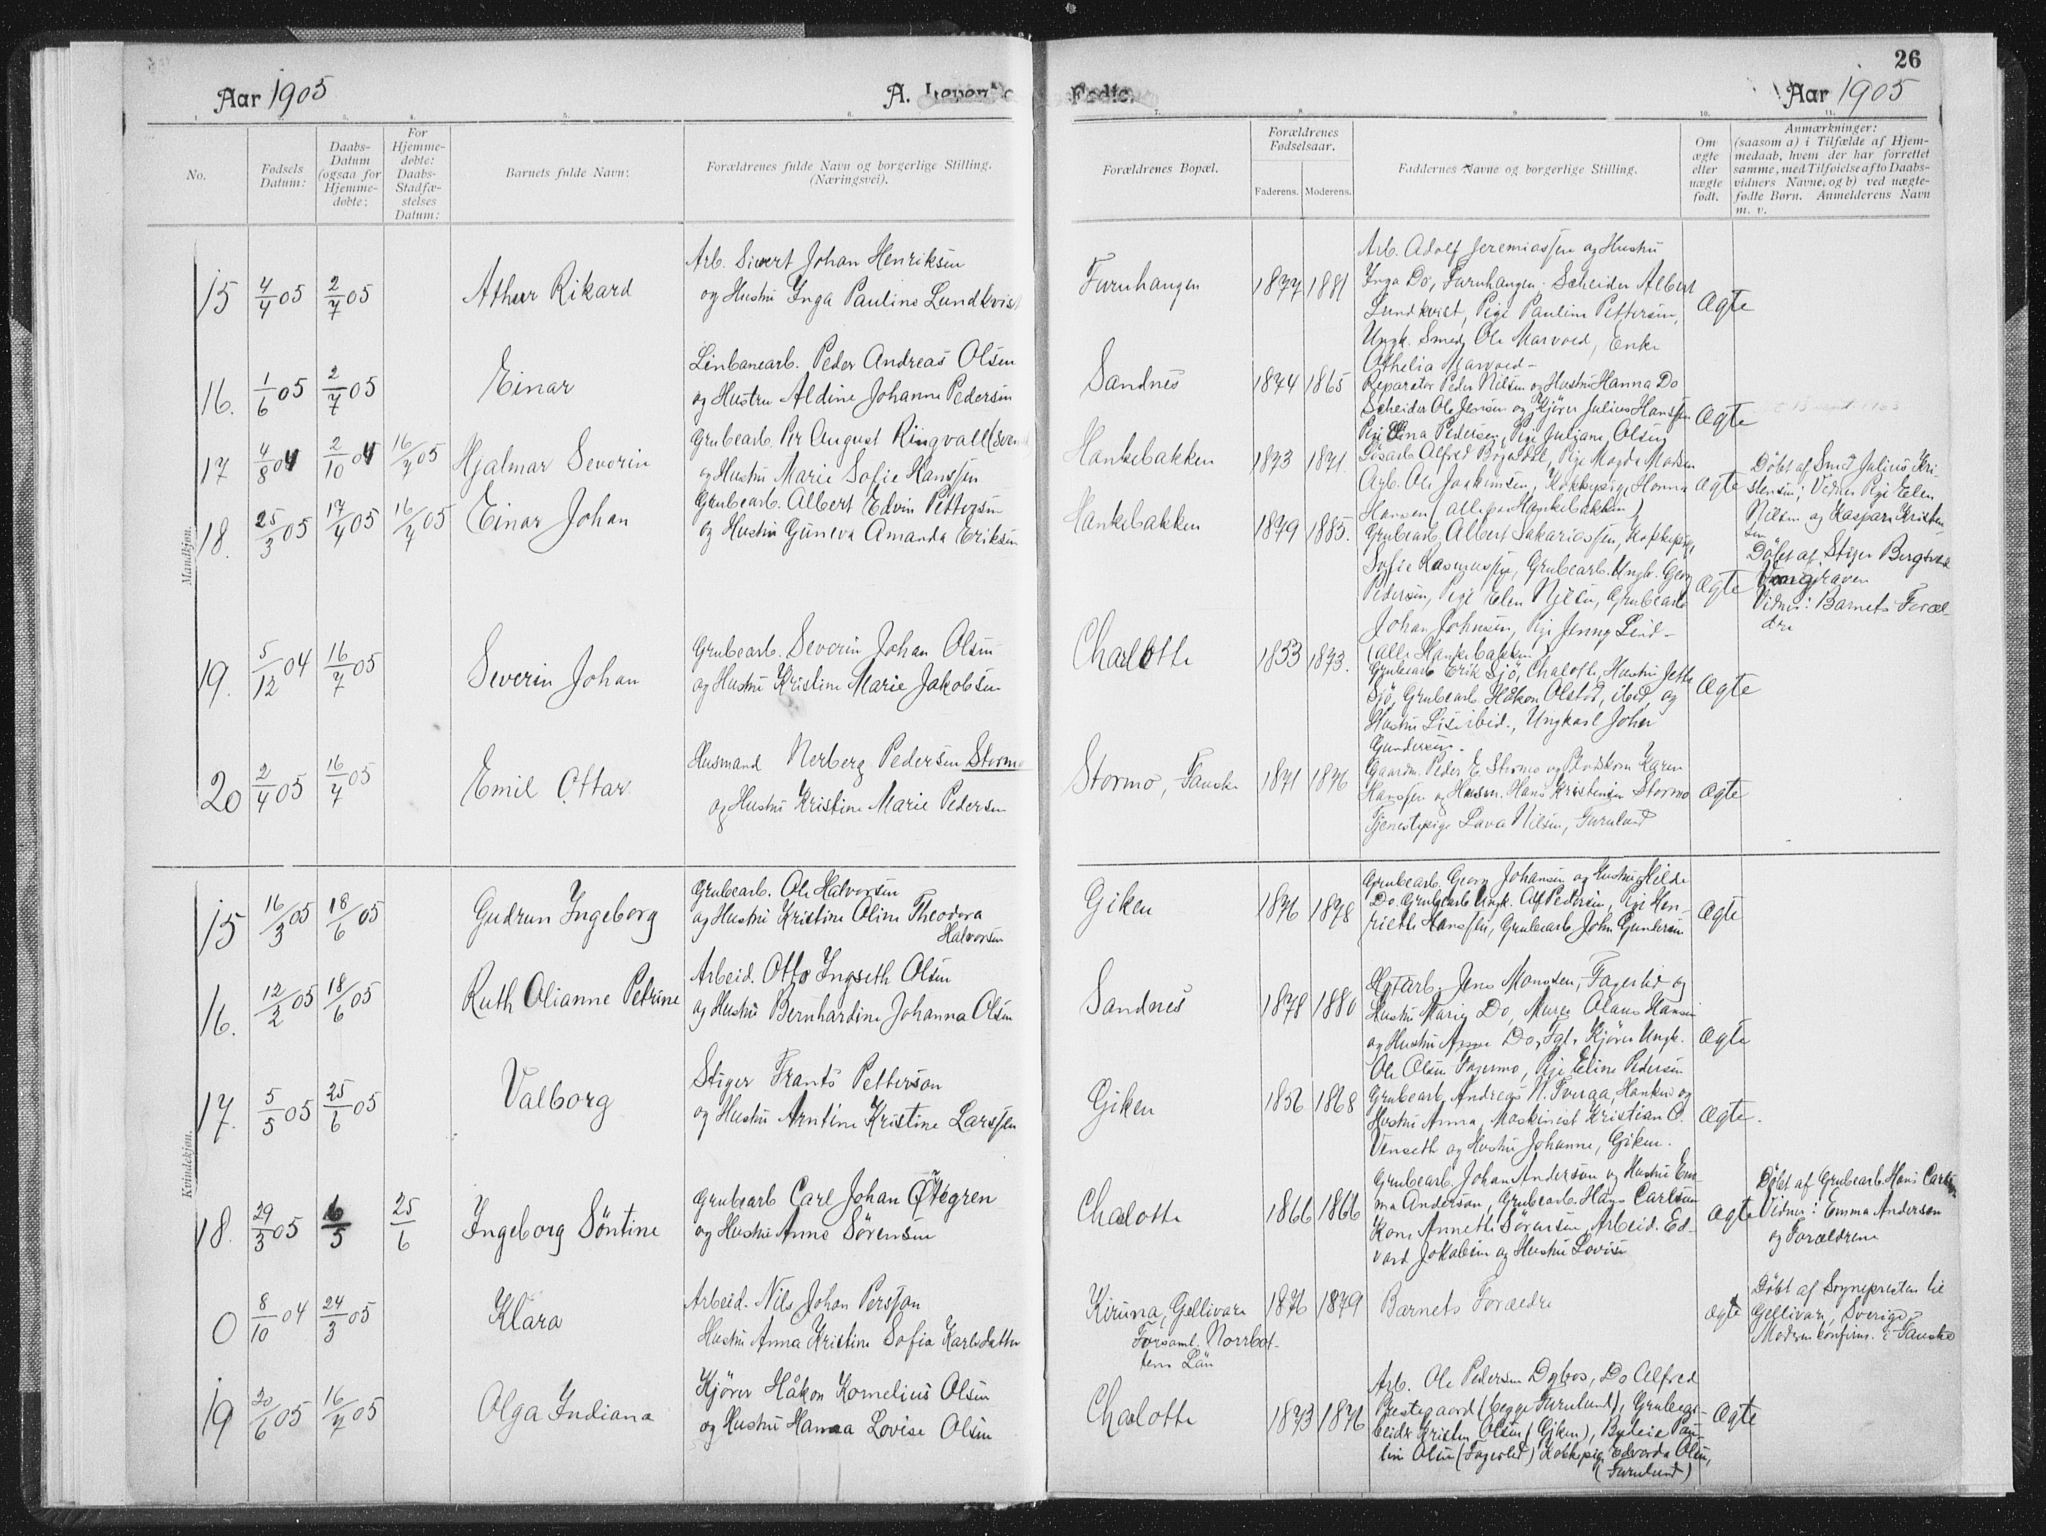 Aar 1905
A. Levende
1. 2. 3. 4. 5. 6.
No.
Fødsels Datum:
Daabs-Datum (ogsaa for Hjemme-døbte:
For Hjemme-døbte: Daabs-Stadfæ-stelses Datum:
Barnets fulde Navn:
Forældrenes fulde Navn og borgerlige Stilling.
(Næringsvei).
Mandkjøn.
15 4/4 05 2/7 05 Athur Rikard
Arb. Sivert Johan Henriksen
og Hustru Inga Pauline Lundkvist
16. 1/6 05 2/7 05 Einar
Linbanearb. Peder Andreas Olsen
og Hustru Aldine Johanne Pedersen
17 4/8 04 2/10 04 16/7 05 Hjalmar Severin
Grubearb. Per August Ringvall (Svensk
og Hustru Marie Sofie Hanssen
18. 25/3 05 17/4 05 16/7 05 Einar Johan
Grubearb. Albert Edvin Pettersen
og Hustru Guneva Amanda Eriksen
19. 5/12 04 16/7 05 Severin Johan
Grubearb. Severin Johan Olsen
og Hustru Kristine Marie Jakobsen
20 2/4 05 16/7 05 Emil Ottar
Husmand Nerberg Pedersen Stormo
og Hustru Kristine Marie Pedersen
Kvindekjøn.
15 16/3 05 18/6 05 Gudrun Ingeborg
Grubearb. Ole Halvorsen
og Hustru Kristine Oline Theodora
Halvorsen
16. 12/2 05 18/6 05 Ruth Olianne Petrine
Arbeid. Otto Ingseth Olsen
og Hustru Bernhardine Johanna Olsen
17. 5/5 05 25/6 05 Valborg
Stiger Frants Petterson
og Hustru Arntine Kristine Larssen
18. 29/3 05 6/5 25/6 Ingeborg Söntine
Grubearb Carl Johan Östegren
og Hustru Anna Sörensen
0 8/10 04 24/3 05 Klara
Arbeid. Nils Johan Persson
Hustru Anna Kristine Sofia Karlsdatter
19 20/6 05 16/7 05 Olga Indiana
Kjörer Håkon Kornelius Olsen
og Hustru Hanna Lovise Olsen
26
Fødte.
Aar 1905
7. 8. 9. 10. 11.
Forældrenes Bopæl.
Forældrenes Fødselsaar.
Faderens. Moderens.
Faddernes Navne og borgerlige Stilling.
Om ægte eller uægte født.
Anmærkninger:
(saasom a) i Tilfælde af Hjem-
medaab, hvem der har forrettet
samme, med Tilføielse af to Daabs-
vidners Navne, og b) ved uægte-
fødte Børn. Anmelderens Navn
m. v.
Furuhaugen 1877 1881
Arb. Adolf Jeremiassen og Hustru
Inga Do, Furuhaugen. Scheider Albert
Lundkvist, Pige Pauline Pettersen,
Ungk. Smed Ole Marvold, Enke
Othelia Marvold-
Ægte
Sandnes 1874 1865
Reparatør Peder Nilsen og Hustru Hanna Do
Scheider Ole Jensen og Kjører Julius Hanssen
Pige Elna Pedersen, Pige Juliane Olsen
Ægte
Hankebakken 1873 1871
Alfred Bogesdal, Pige Magda Madsen
Arb. Ole Joakimsen, Kokkepige Hanna
Hansen (alle paa Hankebakken)
Ægte
Døbt af Smed Julius Kri-
stensen; Vidner Pige Elen
Nilsen og Kaspara Kristen-
sen
Hankebakken 1879 1885.
Grubearb. Albert Sakariassen, Kokkepige
Sofie Rasmussen, Grubearb. Ungk. Georg
Pedersen, Pige Elen Nilsen, Grubearb.
Johan Johnsen, Pige Jenny Lind-
(alle Hankebakken)
Ægte
Døbt af Stiger Bergsven
Vidner: Barnets Foræl-
dre
Charlotte 1853 1873.
Grubearb Erik Sjö, Chalotte, Hustru Jette
Sjö, Grubearb Håkon Olstad, ibid, og
Hustru Lise ibid., Ungkarl Johan
Gundersen.
Ægte
Stormo, Fauske 1871 1876
Gaardm. Peder E. Stormo og Karen
Hanssen og Husm. Hans Kristensen Stormo
Tjenestepige Lava Nilsen, Furulund
Ægte
Giken 1876 1878
Grubearb. Georg Johansen og Hustru Hilda
Do. Grubearb. Ungk. Alf Pedersen, Pige Hen-
riette Hanssen, Grubearb John Gundersen
Ægte
Sandnes 1878 1880
Hytarb. Jens Monssen, Fagerlid og
Hustru Marie Do, Murer Olaus Hansen
og Hustru Anna Do, Kjører Ungk.
Ole Olsen Fagermo, Pige Eline Pedersen
Ægte
Giken 1856 1868
Grubearb. Andreas N. Furuga, Hanken og
Hustru Anna, Maskinist Kristian O.
Venseth og Hustru Johanne, Giken.
Ægte.
Chalotte 1866 1866
Grubearb. Johan Anderson og Hustru Em-
ma Anderson, Grubearb. Hans Carlson
Kone Annette Sörensen, Arbeid. Ed-
vard Jakobsen og Hustru Lovise
Ægte
Døbt af Grubearb. Hans Carlson
Vidner: Emma Anderson
og Forældrene
Kiruna, Gellivare
Forsaml. Norrbot-
tens Län
1876 1879 Barnets Forældre
Ægte
Døbt af Sogneprästen til
Gellivare, Sverige
Modren konfirm. i Fauske
Chalotte 1873 1876
Arb. Ole Pedersen Dybos, Do Alfred
Prestegaard (begge Furulund), Grubear-
beider Kristen Olsen (Giken), Pau-
line Olsen (Fagerlid) Kokkepige Edvarda Olsen,
(Furulund)
Ægte